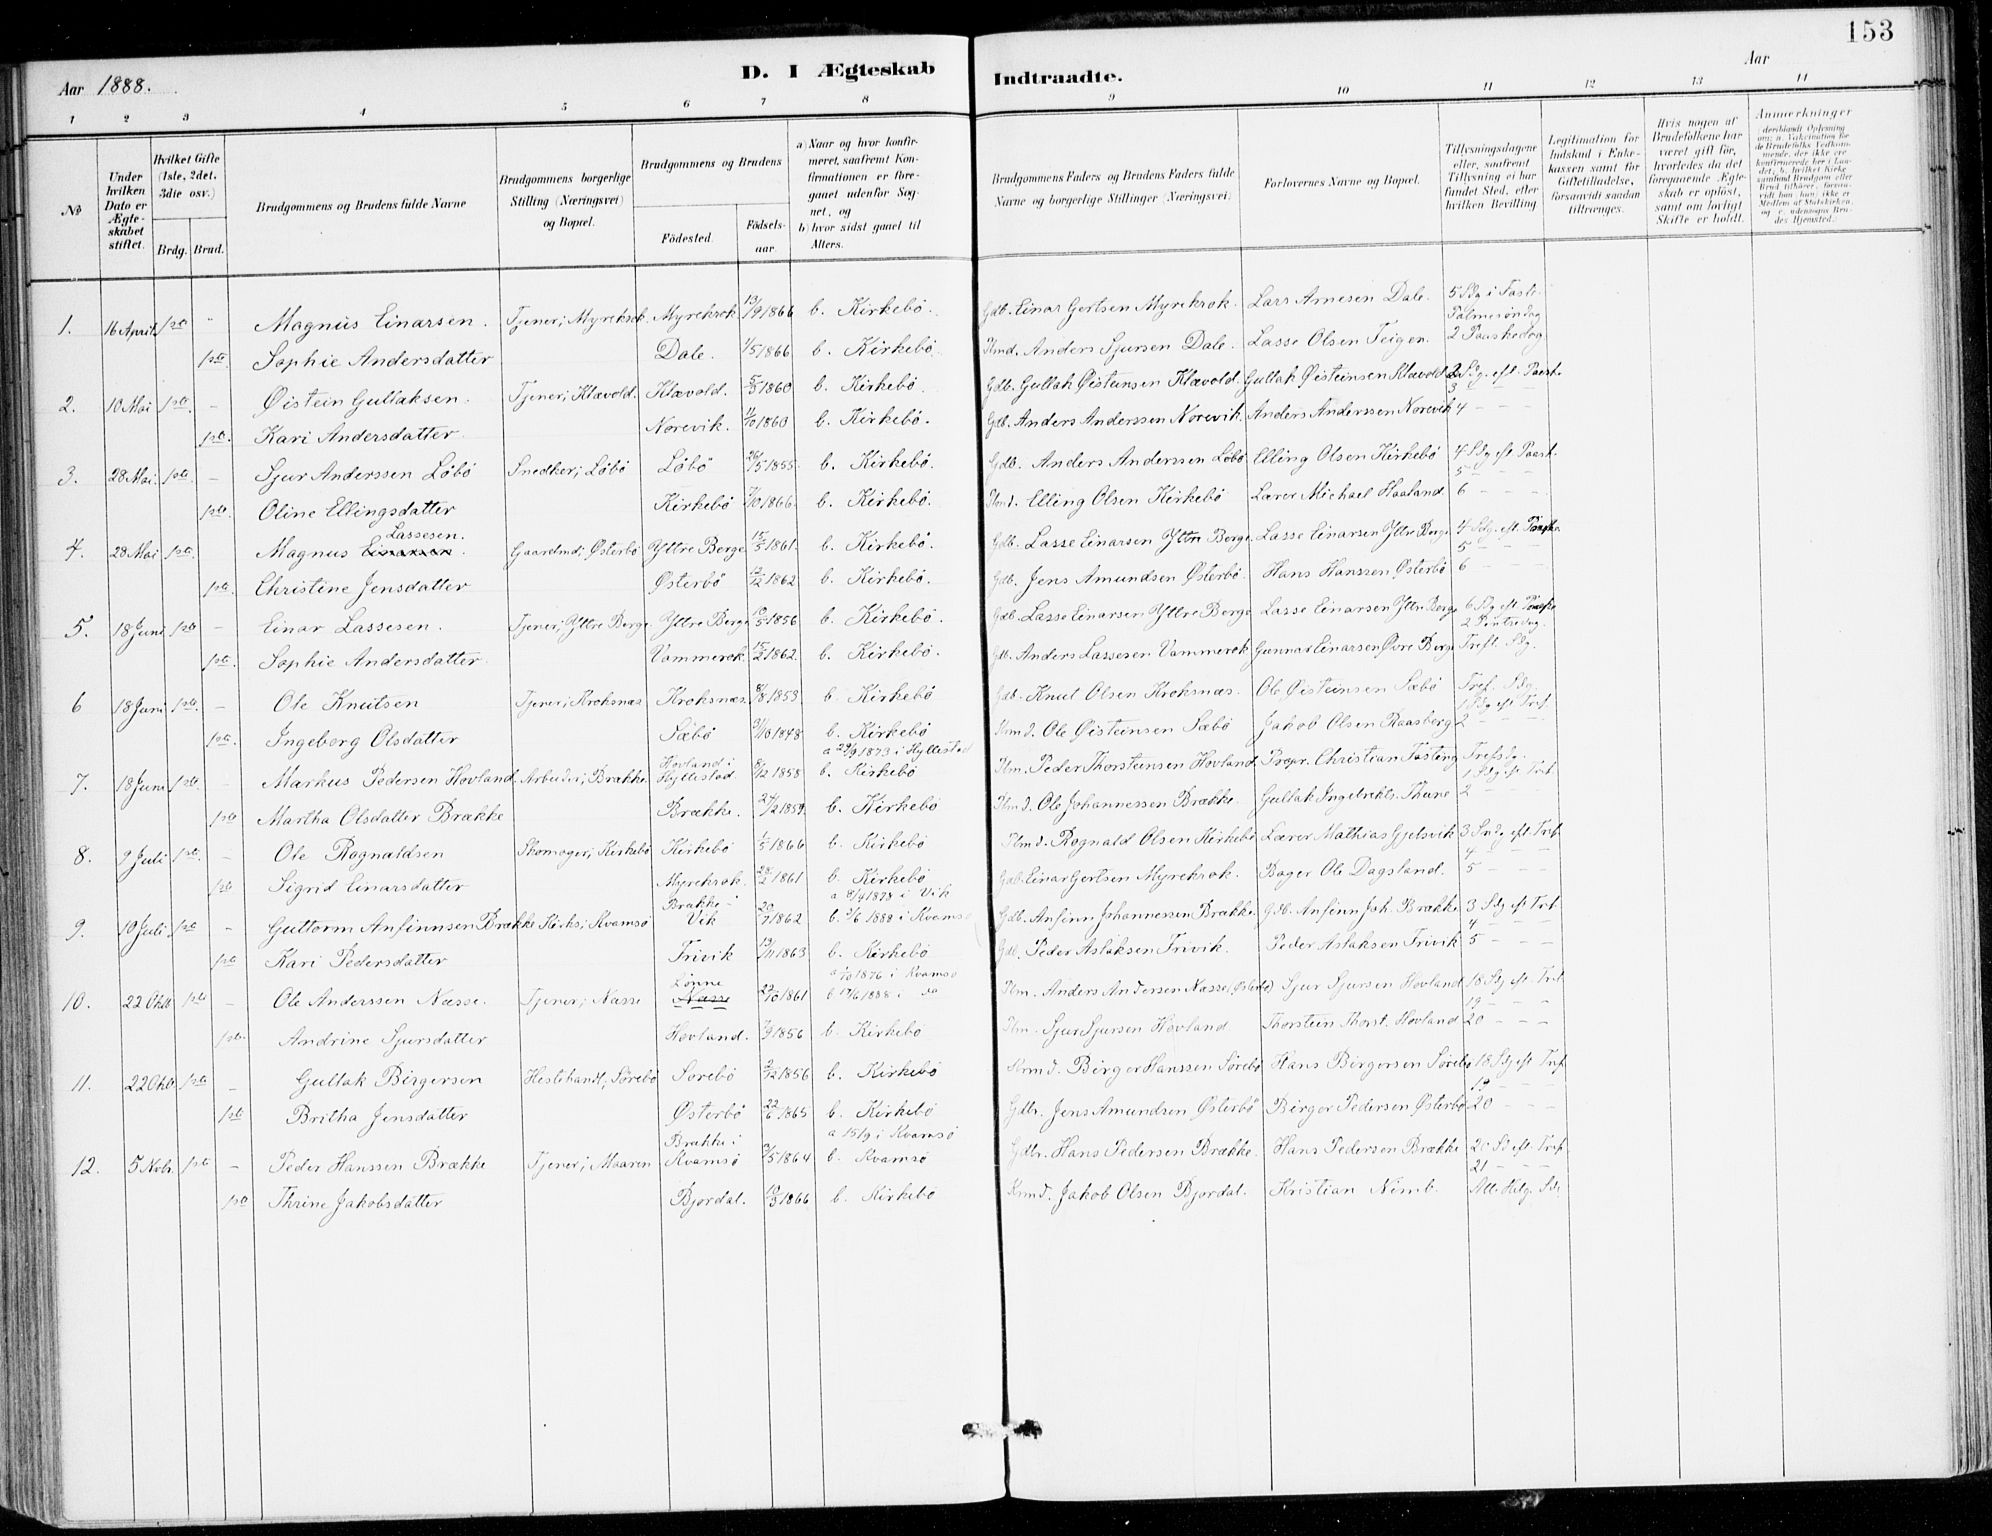 153
Aar 1888. D. I Ægteskab Indtraadte. Aar
1 2 3 4 5 6 7 8 9 10 11 12 13 14
No
Under hvilken Dato er Ægteskabet stiftet.
Hvilket Gifte (1ste, 2det, 3die osv.)
Brdg. Brud.
Brudgommens og Brudens fulde Navne
Brudgommens borgerlige Stilling (Næringsvei) og Bopæl.
Brudgommens og Brudens
Födested. Födselsaar.
a) Naar og hvor konfirmeret, saafremt Konfirmationen er foregaaet udenfor Sognet, og
b) hvor sidst gaaet til Alters.
Brudgommens Faders og Brudens Faders fulde Navne og borgerlige Stillinger (Næringsvei)
Forlovernes Navne og Bopæl.
Tillysningsdagene eller, saafremt Tillysning ei har fundet Sted, efter hvilken Bevilling
Legitimation for Indskud i Enkekassen samt for Giftetilladelse, forsaavidt saadan tiltrænges.
Hvis nogen af Brudefolkene har været gift för, hvorledes da det foregaaende Ægteskab er oplöst, samt om lovligt Skifte er holdt.
Anmerkninger
1. 16 April 1ste " Magnus Einarsen. Tjener; Myrekrok. Myrekrok 13/9 1866 b. Kirkebö. Gdb. Einar Gertsen Myrekrok. Lars Arnesen Dale. 5 Sdg i Faste
Palmesöndag
1ste. Sophie Andersdatter Dale. 1/5 1866 b. Kirkebö. Hmd. Anders Sjursen Dale. Lasse Olsen Teigen. 2 Paaskedag
2. 10 Mai 1ste. - Øistein Gullaksen. Tjener; Klævold. Klævold. 5/5 1860 b. Kirkebö. Gdb. Gullak Øisteinsen Klævold. Gullak Øisteinsen Klævold 2 Sdg. eft. Paask.
3
1ste. Kari Andersdatter. Norevik. 1/10 1860 b. Kirkebö. Gdb. Anders Anderssen Norevik. Anders Anderssen Norevik 4 - - -
3. 28 Mai. 1ste. - Sjur Anderssen Löbö Snedker; Löbö Löbö 26/5 1855. b. Kirkebö. Gdb. Anders Anderssen Löbö Elling Olsen Kirkebö 4 Sdg eft Paask.
5 - -
1ste. Oline Ellingsdatter Kirkebö 7/10 1866. b. Kirkebö. Hmd. Elling Olsen Kirkebö Lærer Michael Haaland. 6 - - -
Lassesen.
4. 28 Mai 1ste. - Magnus Einarsen. Gaardmd; Østerbö Yttre Berge 15/5 1861. b. Kirkebö. Gdb. Lasse Einarsen Yttre Berge. Lasse Einarsen Yttre Berge 4 Sdg. eft. Paaske
5 - -
1ste. Christine Jensdatter Østerbö 12/12 1862 b. Kirkebö. Gdb. Jens Amundsen Østerbö. Hans Hanssen Østerbö 6 - -
5. 18 Juni 1ste - Einar Lassesen. Tjener; Yttre Berge. Yttre Berge 10/5 1856 b. Kirkebö. Gdb. Lasse Einarsen Yttre Berge Lasse Einarsen Yttre Berge 6 Sdg eft Paaske
2 Pintsedag
1ste. Sophie Andersdatter. Vammerok. 15/2 1862. b. Kirkebö. Gdb. Anders Lassesen Vammerok Gunnar Einarsen Øvre Berge Treft. Sdg.
6 18 Juni 1ste. - Ole Knutsen Tjener; Kroksnæs Kroksnæs. 8/8 1853. b. Kirkebö Gdb. Knut Olsen Kroksnæs. Ole Øisteinsen Sæbö Tref. Sdg.
1 Sdg eft Tref.
1ste. Ingeborg Olsdatter Sæbö 3/10 1848 b. Kirkebö Hmd. Ole Øisteinsen Sæbö Jakob Olsen Raasberg 2 - - -
a 29/9 1873 i Hyllestad
7. 18 Juni 1ste - Markus Pedersen Hovland. Arbeider; Brække. Hovland i Hyllestad 8/12 1858 b. Kirkebö Hm. Peder Thorsteinsen Hovland Propr. Christian Fasting Trefsdg.
1 Sdg eft Tref.
1ste Martha Olsdatter Brække Brække. 27/2 1859. b. Kirkebö Hmd. Ole Johannessen Brække. Gullak Ingebrikts. Thune 2 - - -
8. 9 Juli 1ste. - Ole Rognaldsen Skomager; Kirkebö Kirkebö 1/5 1866 b. Kirkebö Hmd. Rognald Olsen Kirkebö Lærer Mathias Gjelsvik 3 Sndg eft. Tref.
4 - -
1ste Sigrid Einarsdatter Myrekrok. 28/2 1861 b. Kirkebö Gdb. Einar Gertsen Myrekrok. Bager Ole Dagsland. 5 - - -
a 8/9 1878 i Vik
9. 10 Juli 1ste - Guttorm Anfinnsen Brække Kirks; Kvamsö Brække i Vik 20/7 1862 b. 3/6 1888 i Kvamsö Gdb. Anfinn Johannessen Brække. Gdb. Anfinn Joh. Brække 3 Sdg eft Tref.
4
1ste Kari Pedersdatter Trivik 13/11 1863 b. Kirkebö Gdb. Peder Aslaksen Trivik. Peder Aslaksen Trivik 5 - - -
Lønne a 1/10 1876 i Kvamsö
10. 22 Oktb 1ste - Ole Anderssen Næsse. Tjener; Næsse Næsse 22/10 1861 b 17/6 1888 i do Hm. Anders Andersen Næsse (Østerbö) Sjur Sjursen Hovland 18 Sdg eft. Tref.
19 - -
1ste. Andrine Sjursdatter Hovland. 7/9 1856 b. Kirkebö Hm. Sjur Sjursen Hovland Thorstein Thorst. Hovland 20 - - -
11. 22 Oktb 1ste - Gullak Birgersen Hestehandl; Sörebö Sorebö 2/12 1856 b. Kirkebö Krmd. Birger Hanssen Sörebö Hans Birgersen Sörebö 18 Sdg eft Tref.
19 -
1ste Britha Jensdatter Østerbö 22/6 1865 b. Kirkebö Gdbr. Jens Amundsen Østerbö Birger Pedersen Østerbö 20 - - -
a 15/9 i Kvamsö
12. 5 Novbr. 1ste - Peder Hanssen Brække Tjener; Maaren Brække i Kvamsö 2/5 1864 b. Kvamsö Gdbr. Hans Pedersen Brække. Hans Pedersen Brække 20 Sd eft. Tref
21 - - -
1ste Thrine Jakobsdatter Bjordal. 10/3 1866 b. Kirkebö Krmd. Jakob Olsen Bjordal. Kristian Nimb. All. Helg. Sdg